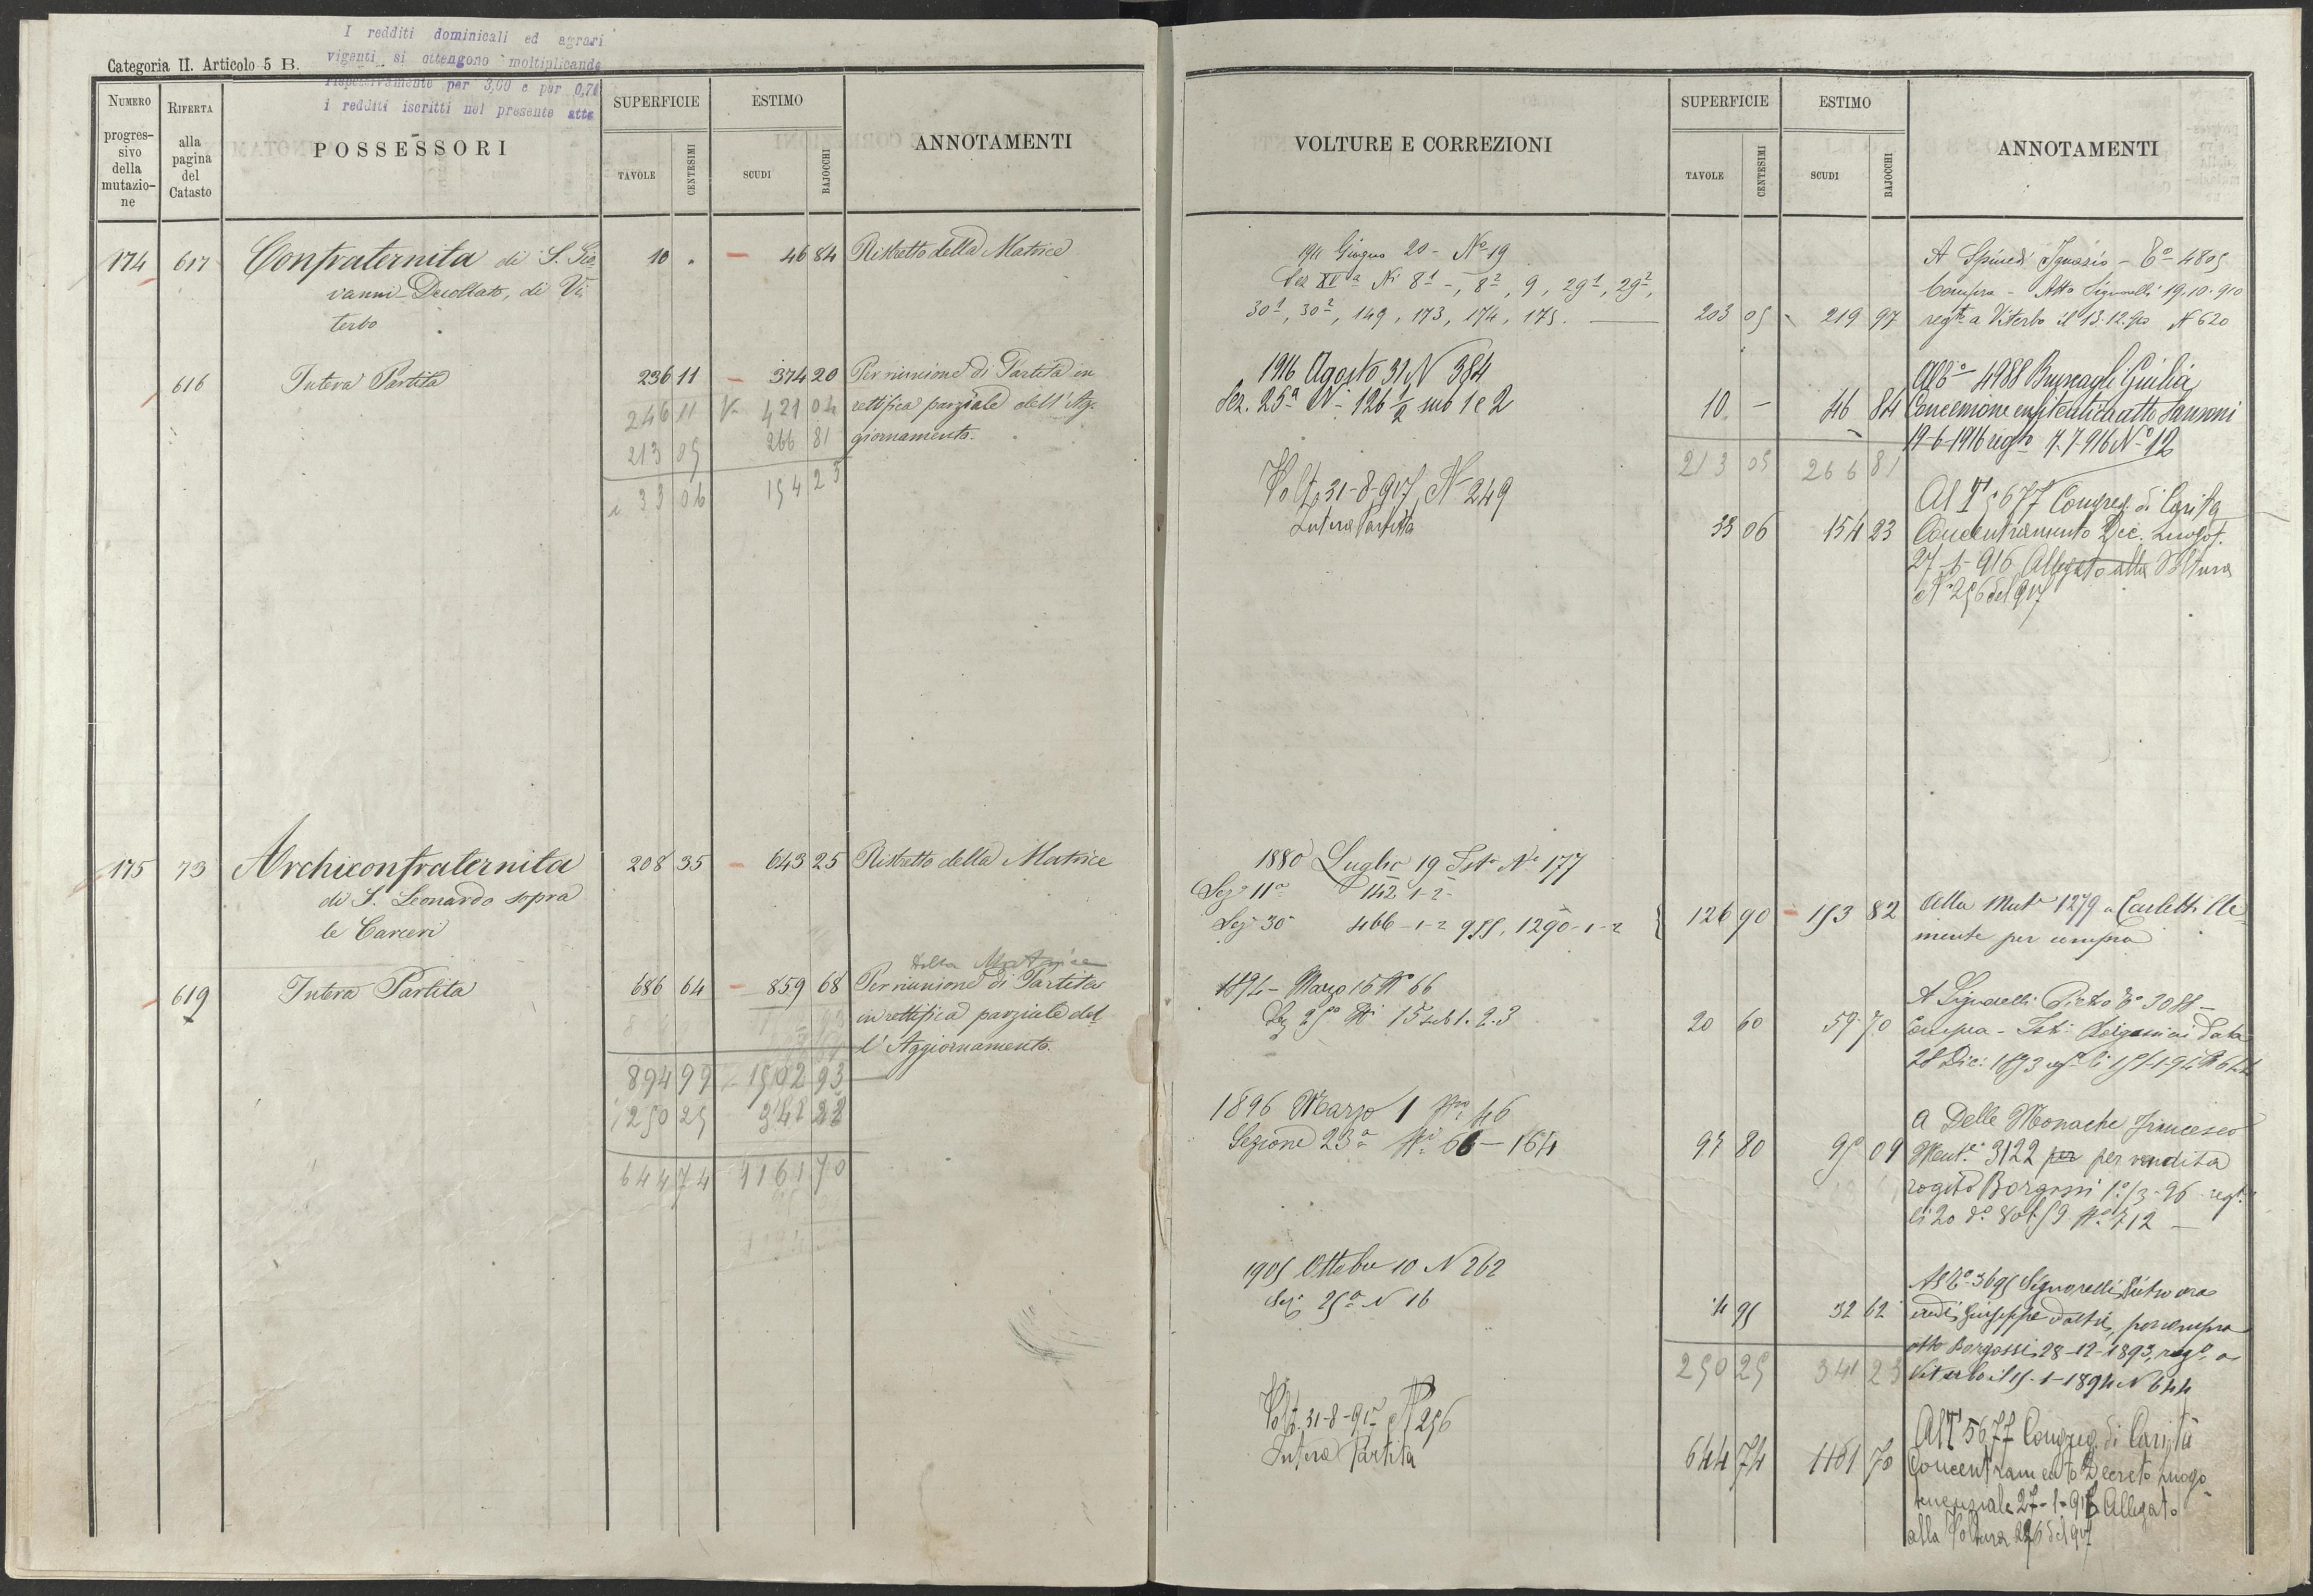 I redditi dominicali ed agrari
vigenti si ottengono moltiplicando
rispettivamente per 3,00 e per 0,71
i redditi iscritti nel presente atto
Categoria II. Articolo 5 B.
NUMERO progressivo della mutazione
RIFERTA alla pagina del Catasto
POSSESSORI
SUPERFICIE
TAVOLE CENTESIMI
ESTIMO
SCUDI BAJOCCHI
ANNOTAMENTI
174 617 Confraternita di S. Gio 10 . 46 84 Ristretto della Matrice
vanni Decollato, di Vi
terbo
616 Intera Partita 236 11 374 20 Per riunione di Partita in
246 11 421 04 rettifica parziale dell'Ag-
213 05 266 81 giornamento.
33 06 154 23
175 73 Archiconfraternita 208 35 643 25 Ristretto della Matrice
di S. Leonardo sopra
le Carceri
della Matrice
619 Intera Partita 686 64 859 68 Per riunione di Partita
in rettifica parziale del
l'Aggiornamento.
894 99 1502 93
250 25 341 23
644 74 1161 70
VOLTURE E CORREZIONI
SUPERFICIE
TAVOLE CENTESIMI
ESTIMO
SCUDI BAJOCCHI
ANNOTAMENTI
1911 Giugno 20 - No 19 A Spinedi Ignazio - 4805
Sez XVa Ni 8 1 -, 8 2, 9, 29 1, 29 2, Compra - Atto Signorelli 19.10.910
30 1, 30 2, 149, 173, 174, 175. 203 05 219 97 regto a Viterbo il 13.12.910 N 620
1916 Agosto 31 N 384 4988 Giulia
Sez. 25a N 126 1/2 sub 1 e 2 10 - 46 84 Concessione enfiteutica atto
19-6-1916 regto 7.7.916 No 12
213 05 266 81
Volt. 31-8-917 N 249 Al T 5677 Congreg. di Carità
Intera Partita 33 06 154 23 Concentramento Dec. Luogot.
27-1-916 Allegato alla Voltura
N 256 del 917
1880 Luglio 19 Ista No 177
Sez 11a 142 1-2
Sez 30 466-1-2 955, 1290-1-2 126 90 153 82 Alla Muta 1279 a Carletti Cle
mente per compra
1894 - Marzo 15 No 66 A Signorelli Pietro 3088 -
Sez 25a Ni 15 sub 1.2.3 20 60 59 70 Compra - Data
28 Dic: 1893
1896 Marzo 1 46 a Delle Monache Francesco
Sezione 23a Ni 66 - 164 97 80 95 09 Mut. 3122 per per vendita
rogito Borgassi 1o/3-96 regt.
li 20 do vol. 59 No 712 -
1905 Ottobre 10 N 262 Al 3695 Signorelli Pietro
Sez 25a N 16 4 95 32 62 Giuseppe ed altri, per compra
atto Borgassi 28-12-1893, rego. a
250 25 341 23 Viterbo il 15-1-1894 N 644
Volt. 31-8-917 N 256 Al T 5677 Congreg. di Carità
Intera Partita 644 74 1161 70 Concentramento Decreto Luogo-
tenenziale 27-1-916 Allegato
alla Voltura 256 del 917